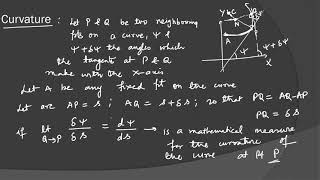 Curvature : Let P & Q be two neighbouring
pts on a curve, Ψ &
Ψ+δΨ the angles which
the tangents at P & Q
make with the x-axis
Let A be any fixed pt on the curve
Let arc AP = s ; AQ = s+δs ; so that PQ = AQ-AP
PQ = δs
if lt Q→P δΨ/δs = dΨ/ds → is a mathematical measure
for the curvature of
the curve at pt P
Y
C
N
Q
P
A
Ψ
Ψ+δΨ
X